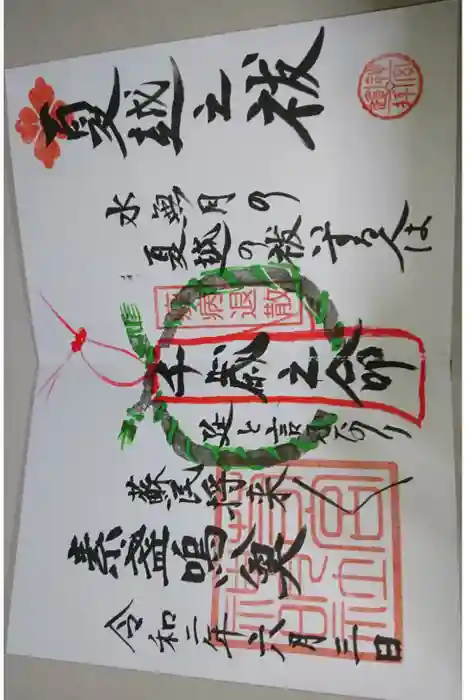 夏越之祓
水無月の
夏越の祓する人は
疫病退散
千歳之命
延と言ふなり
蘇民将来
素盞鳴尊
令和二年六月三日